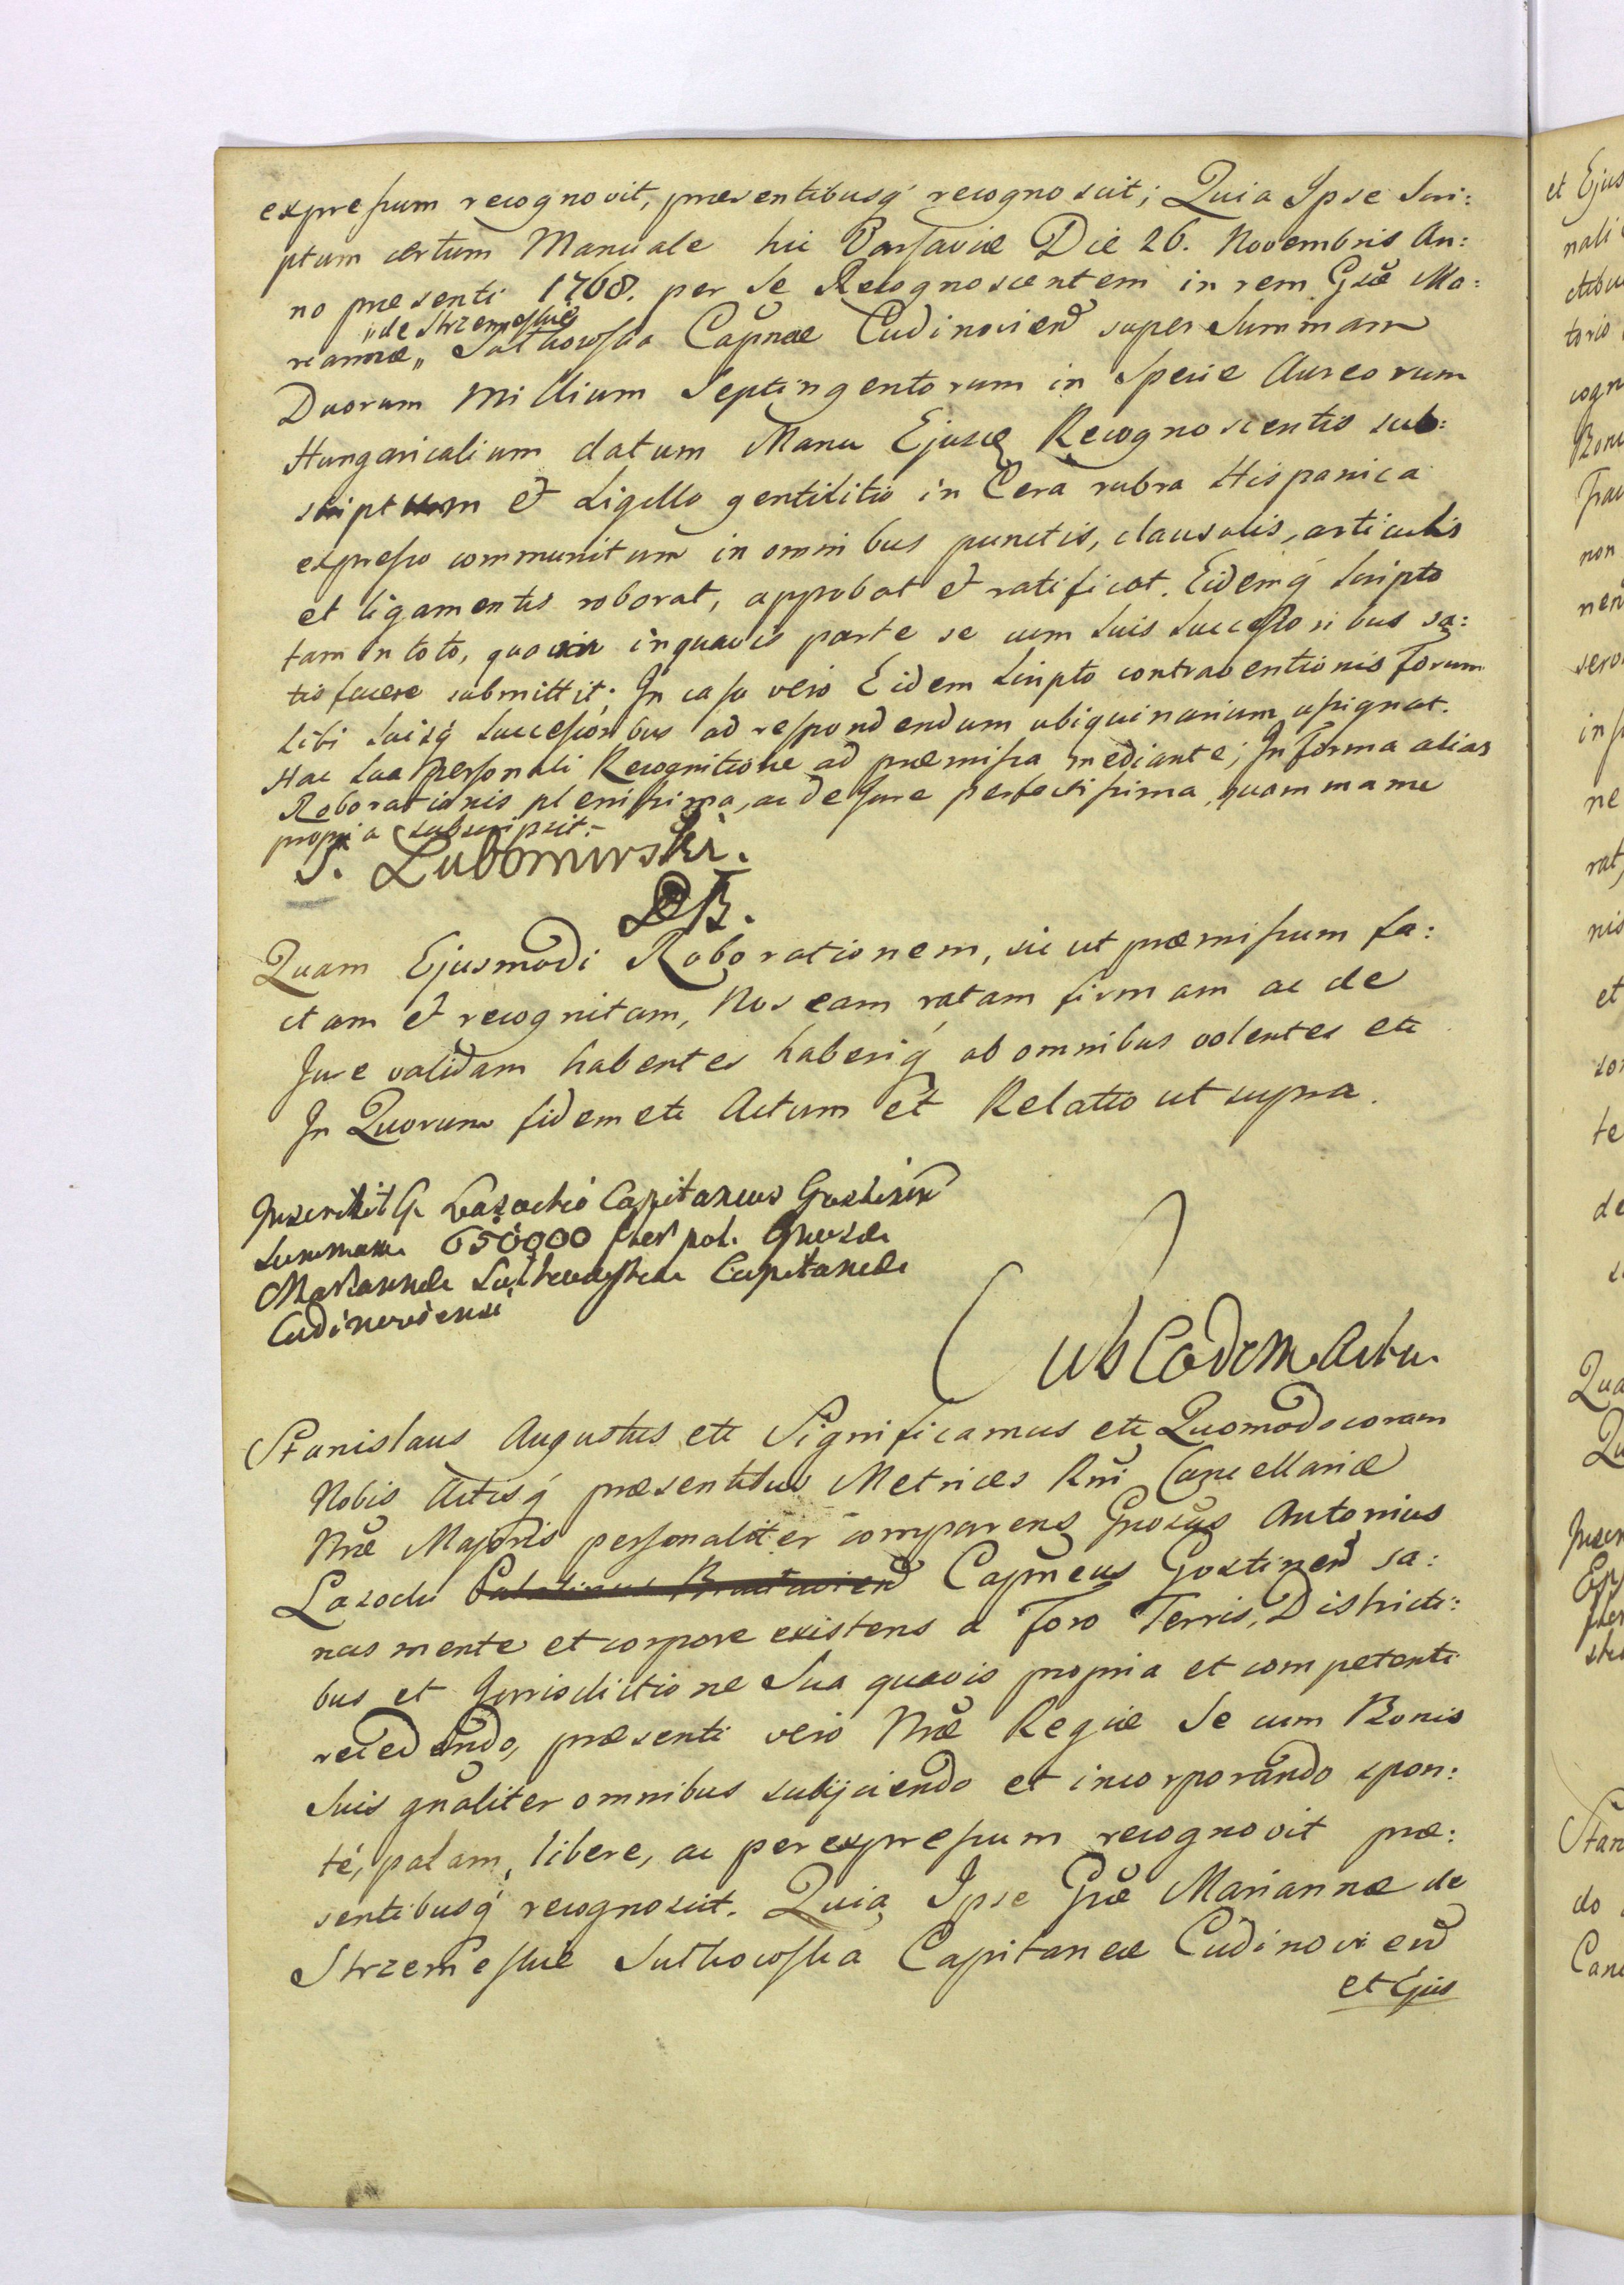 expressum recognovit, præsentibusq́ recognoscit; Quia Ipse Scri:
ptum certum Manuale hic Varsaviæ Die 26. Novembris An:
no præsenti 1768. per se Recognoscentem in rem Gsæ Ma:
„de Strzemeskie
riannæ „ Sulkowska Capnæ Cudinovien̄ super Summam
Duorum Millium Septingentorum in Specie Aureorum
Hungaricalium datum Manu Ejusdē Recognoscentis sub:
scriptum et Sigillo gentilitio in Cera rubra Hispanica
expresso communitum in omnibus punctis, clausulis, articulis
et ligamentis roborat, approbat et ratificat. Eidemq́ Scripto
tam in toto, quam in quavis parte se cum suis Successoribus sa:
tisfacere submittit; In casu vero Eidem Scripto contraventionis Forum
Sibi Suisq́ Successoribus ad respondendum ubiquinarium assignat.
Hac sua personali Recognitione ad præmissa mediante; In forma alias
Roborationis plenissima, ac de Jure perfectissima, quam manu
propria subscripsit.-
S. Lubomirski.
Quam Ejusmodi Roborationem, sic ut præmissum fa:
ctam et recognitam, Nos eam ratam firmam ac de
Jure validam habentes haberiq́ ab omnibus volentes etc
In Quorum fidem etc Actum et Relatio ut supra.
Inscribit G. Lasocki Capitaneus Gostinen̄
Summam 650000 flen̄ pol. Gnosæ
Mariannæ Sulkowska Capitaneæ
Cudinoviensi
Sub Eodem Actu.
Stanislaus Augustus etc Significamus etc Quomodo coram
Nobis Actisq́ præsentibus Metrices Rn̄i Cancellariæ
Nr̄æ Majoris personaliter comparens Gnosus Antonius
Lasocki Capn̄eus Gostinen̄ sa:
nus mente et corpore existens a Foro Terris, Districti:
bus et Jurisdictione Sua quavis propria et competenti
recedendo, præsenti vero Nr̄æ Regiæ Se cum Bonis
Suis gn̄aliter omnibus subijciendo et incorporando spon:
té, palam, libere, ac per expressum recognovit præ:
sentibusq́ recognoscit. Quia Ipse Gsæ Mariannæ de
Strzemeskie Sulkowska Capitaneæ Cudinovien̄
et Ejus